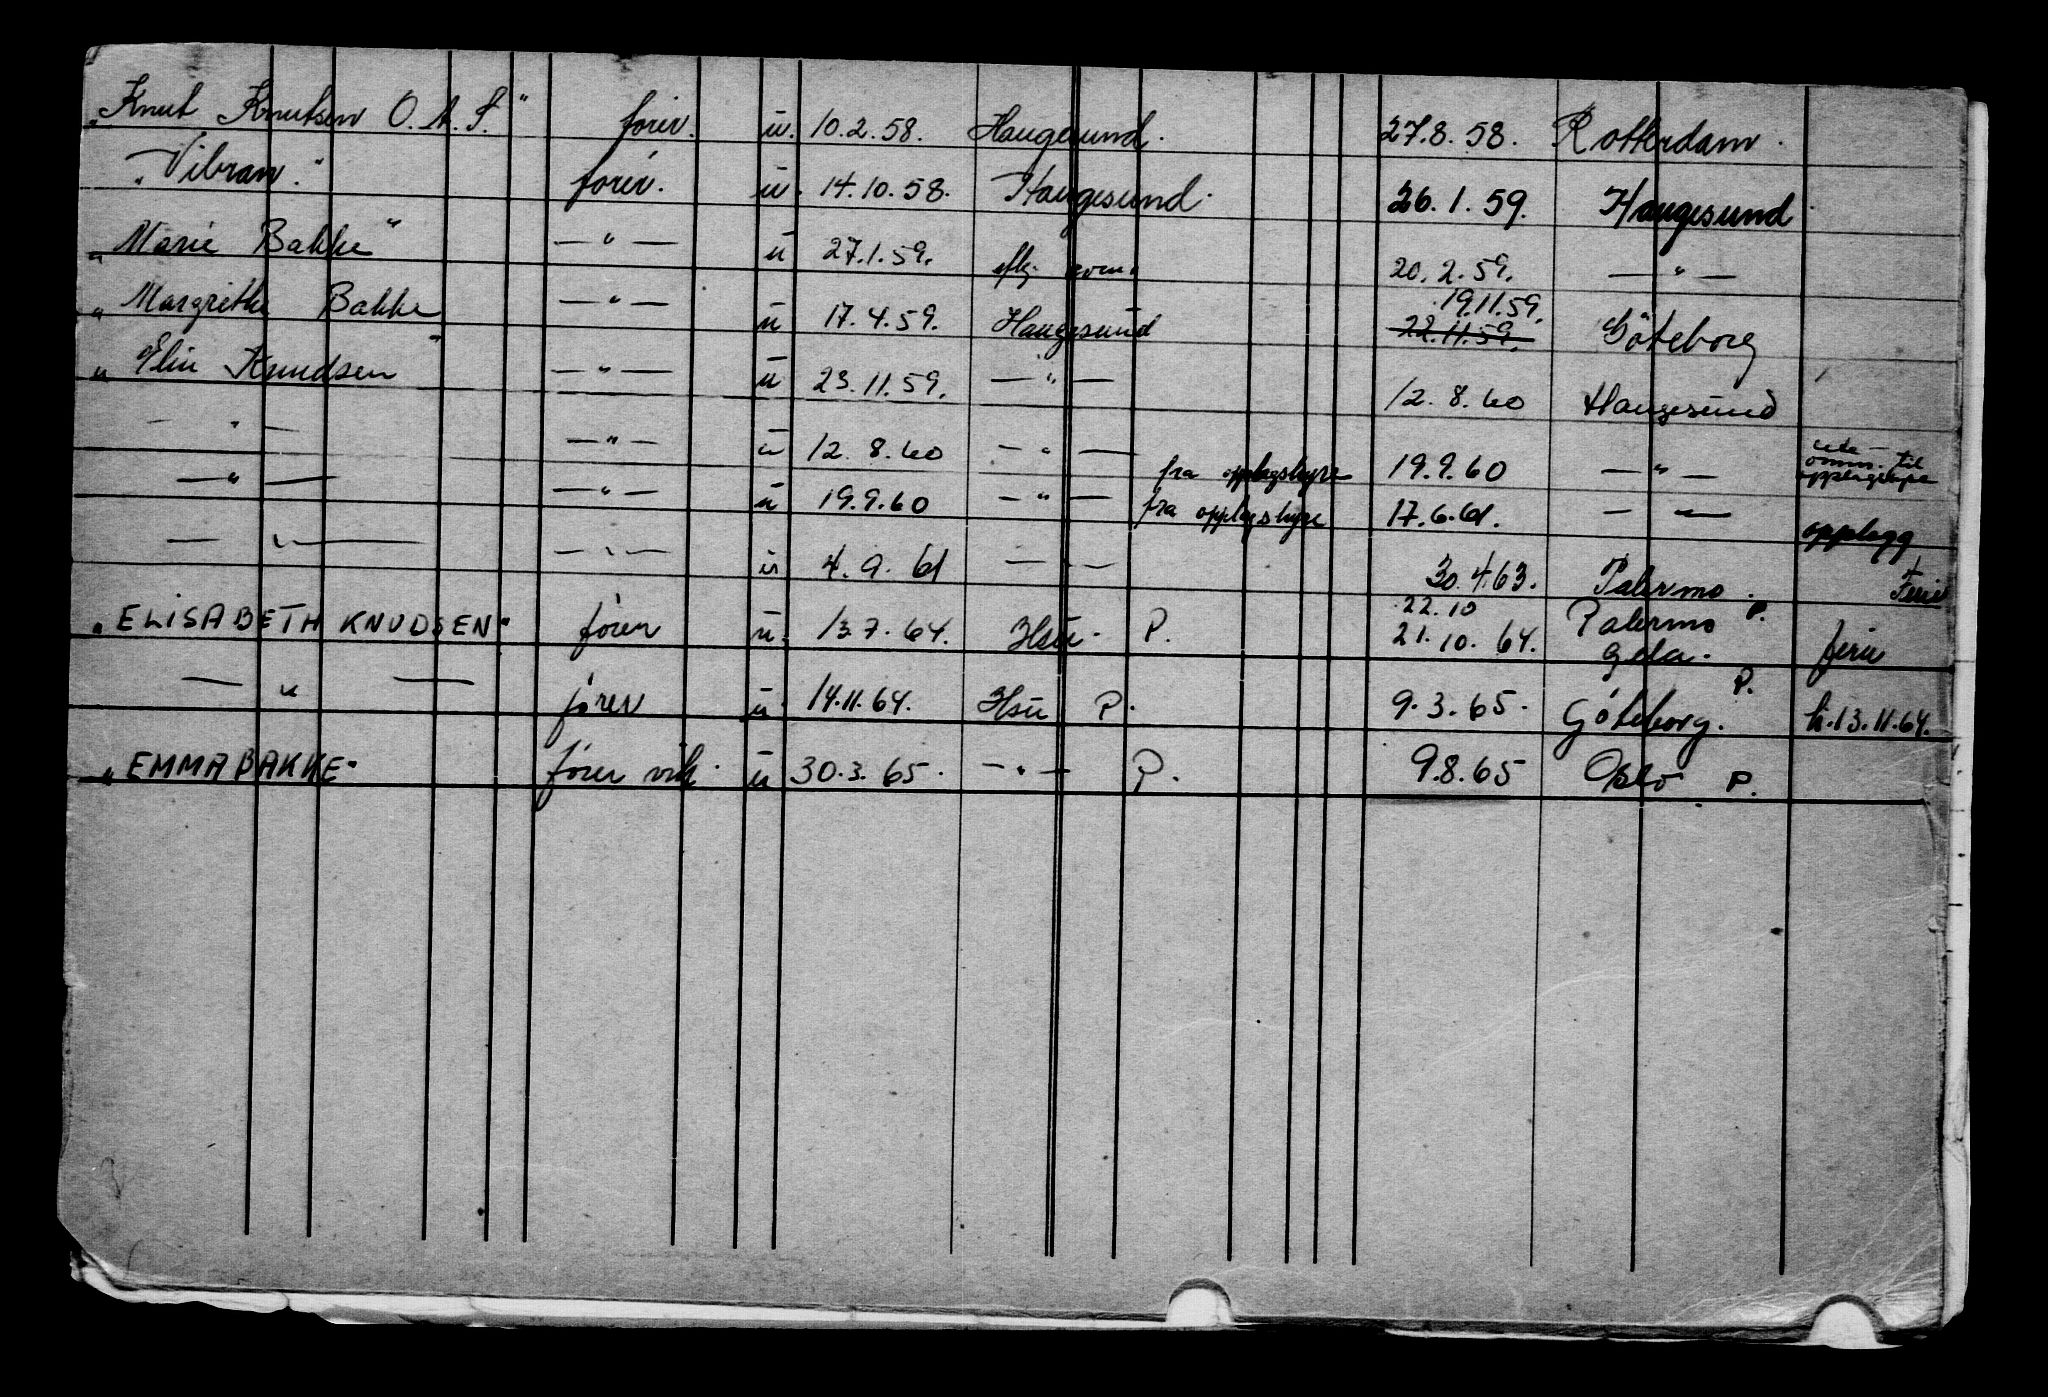 "Knut Knutsen O. A. S." fører. u. 10.2.58. Haugesund. 27.8.58. Rotterdam.
"Vibran." fører. u. 14.10.58. Haugesund. 26.1.59. Haugesund.
"Marie Bakke" — " — u 27.1.59. 20.2.59. — " —
"Margrethe Bakke — " — u 17.4.59. Haugesund 19.11.59. 22.11.59. Göteborg
"Elin Knudsen" — " — u 23.11.59. — " — 12.8.60 Haugesund
— " — — " — u 12.8.60 — " — fra opplagshyre 19.9.60 — " — omm. til opplagshyre
— " — — " — u 19.9.60 — " — fra opplagshyre 17.6.61. — " — opplegg
— " — — " — u 4.9.61 — " — 30.4.63. Palermo. Ferie
"ELISABETH KNUDSEN" fører u. 13.7.64. Hsu. P. 22.10 21.10.64. Palermo P. Gela. ferie
— " — fører u 14.11.64. Hsu P. 9.3.65. Göteborg. P. h.13.11.64.
"EMMA BAKKE" fører vik. u 30.3.65. — " — P. 9.8.65 Oslo P.